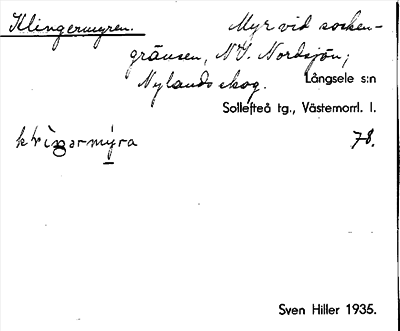 Klingermyren. Myr vid socken-
gränsen, NV. Nordsjön;
Nylands skog. Långsele s:n
Sollefteå tg., Västernorrl. l.
78.
Sven Hiller 1935.